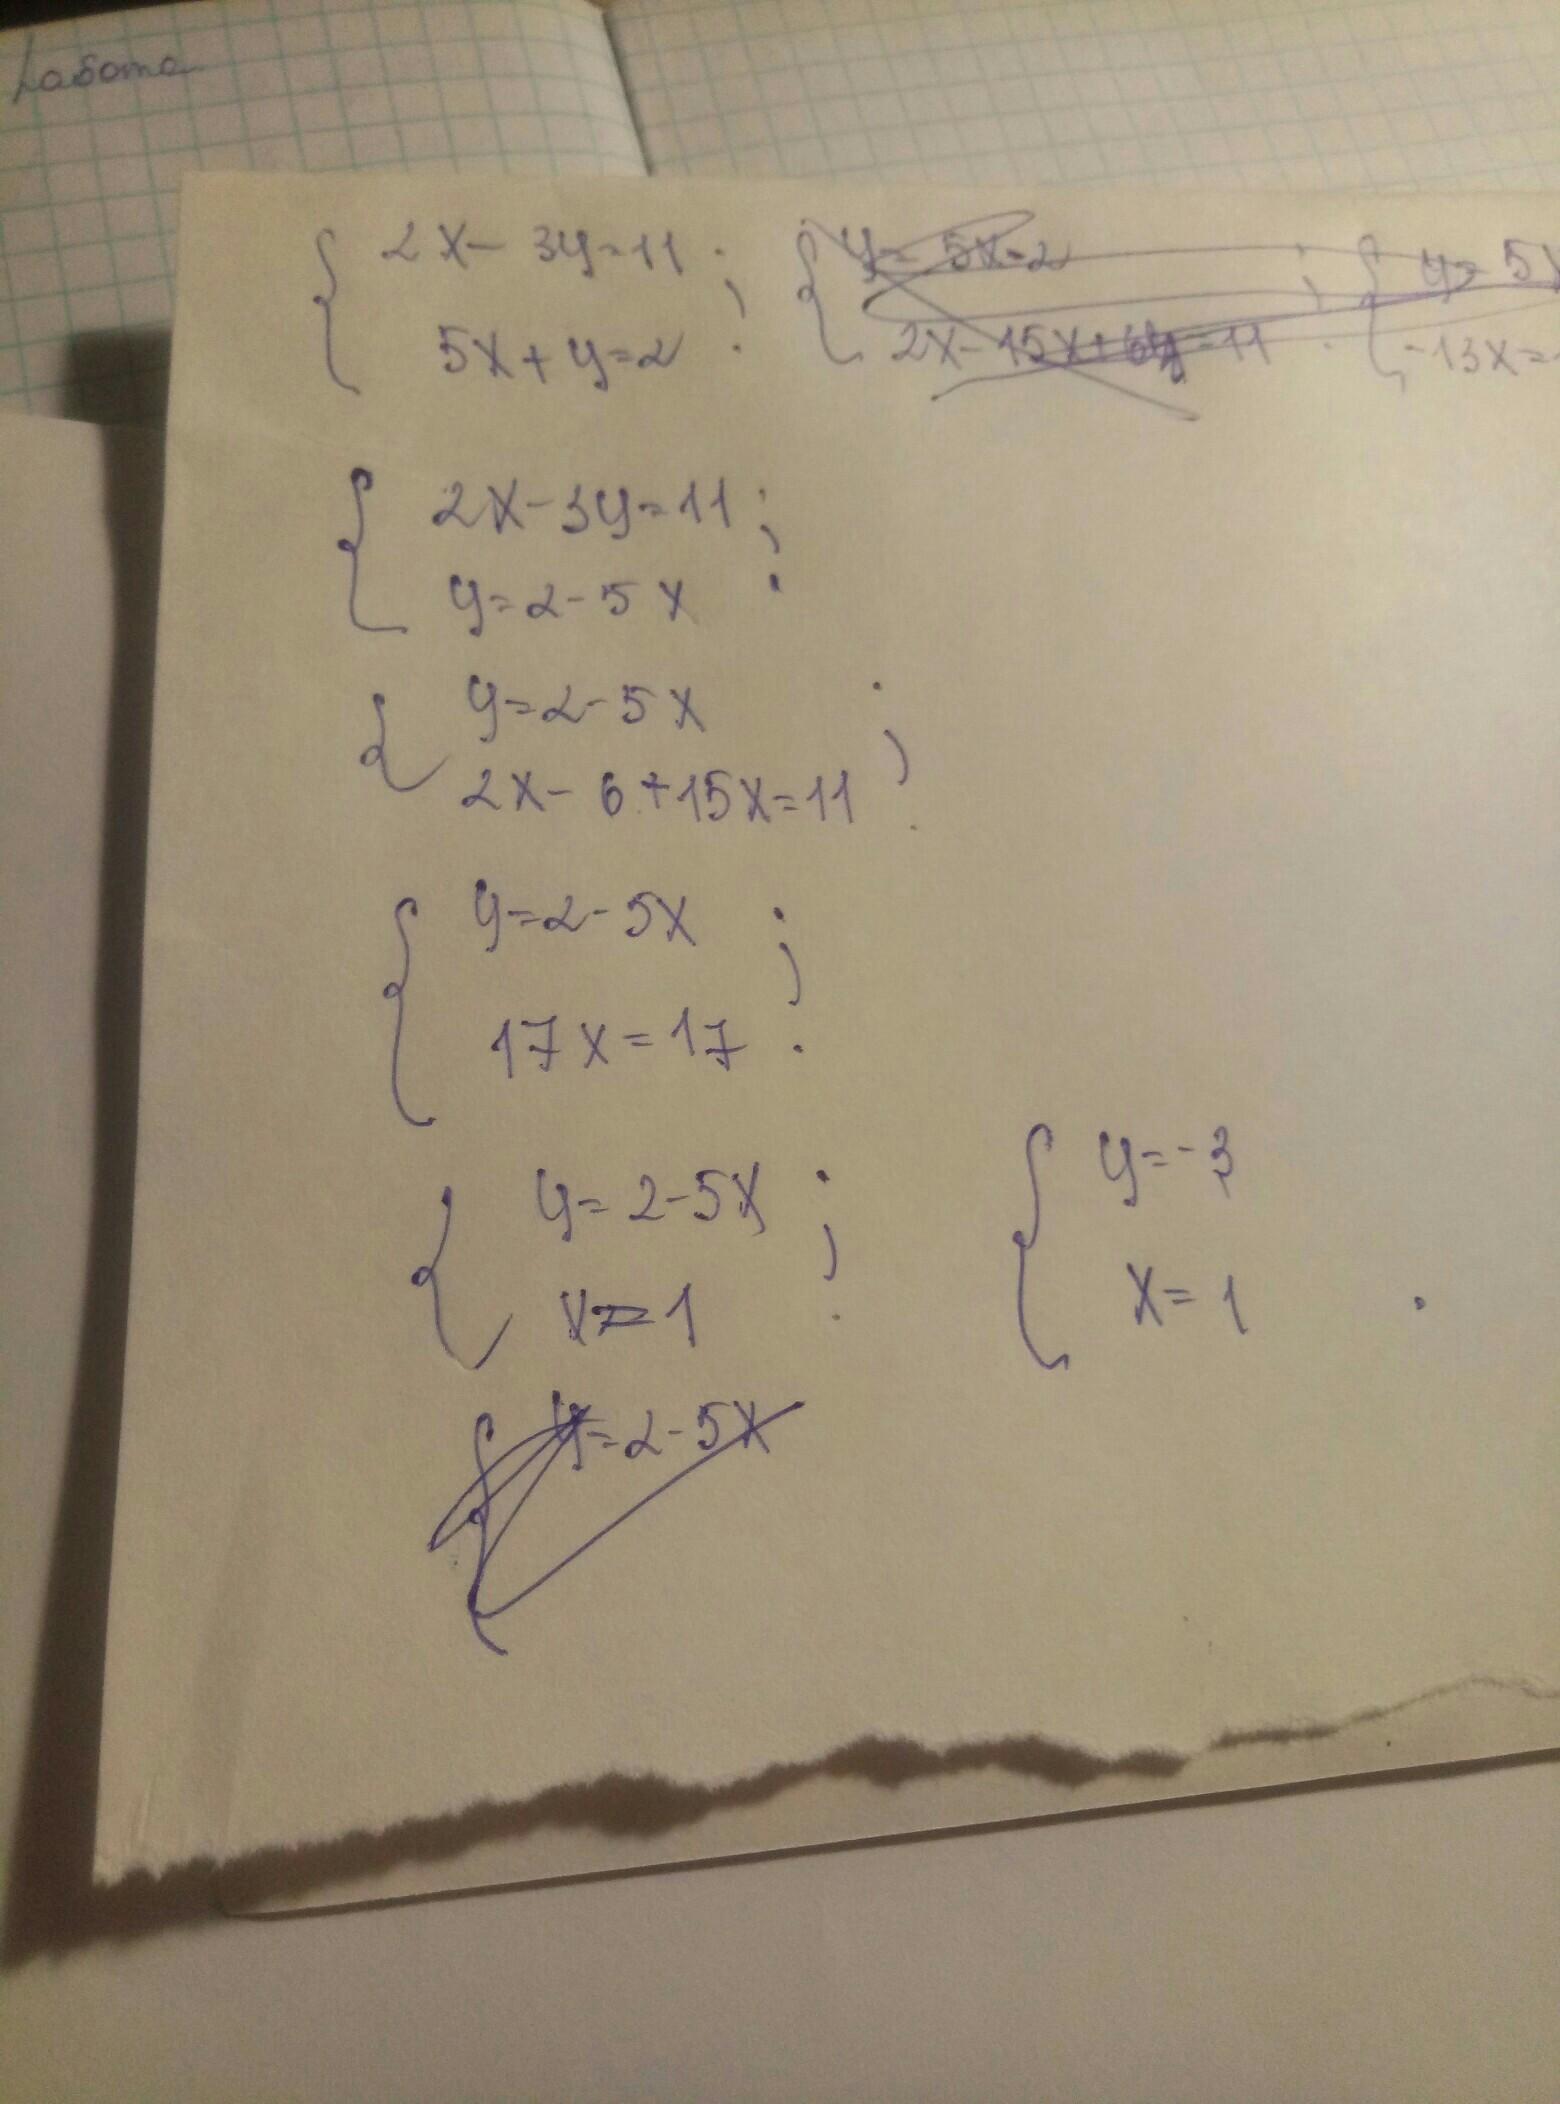 работа
2x - 3y = 11 ;
5x + y = 2
y = 5x - 2 ;
2x - 15x + 6y = 11
y = 5x
-13x =
2x - 3y = 11 ;
y = 2 - 5x
y = 2 - 5x ;
2x - 6 + 15x = 11
y = 2 - 5x ;
17x = 17
y = 2 - 5x ;
x = 1
y = -3
x = 1 .
y = 2 - 5x